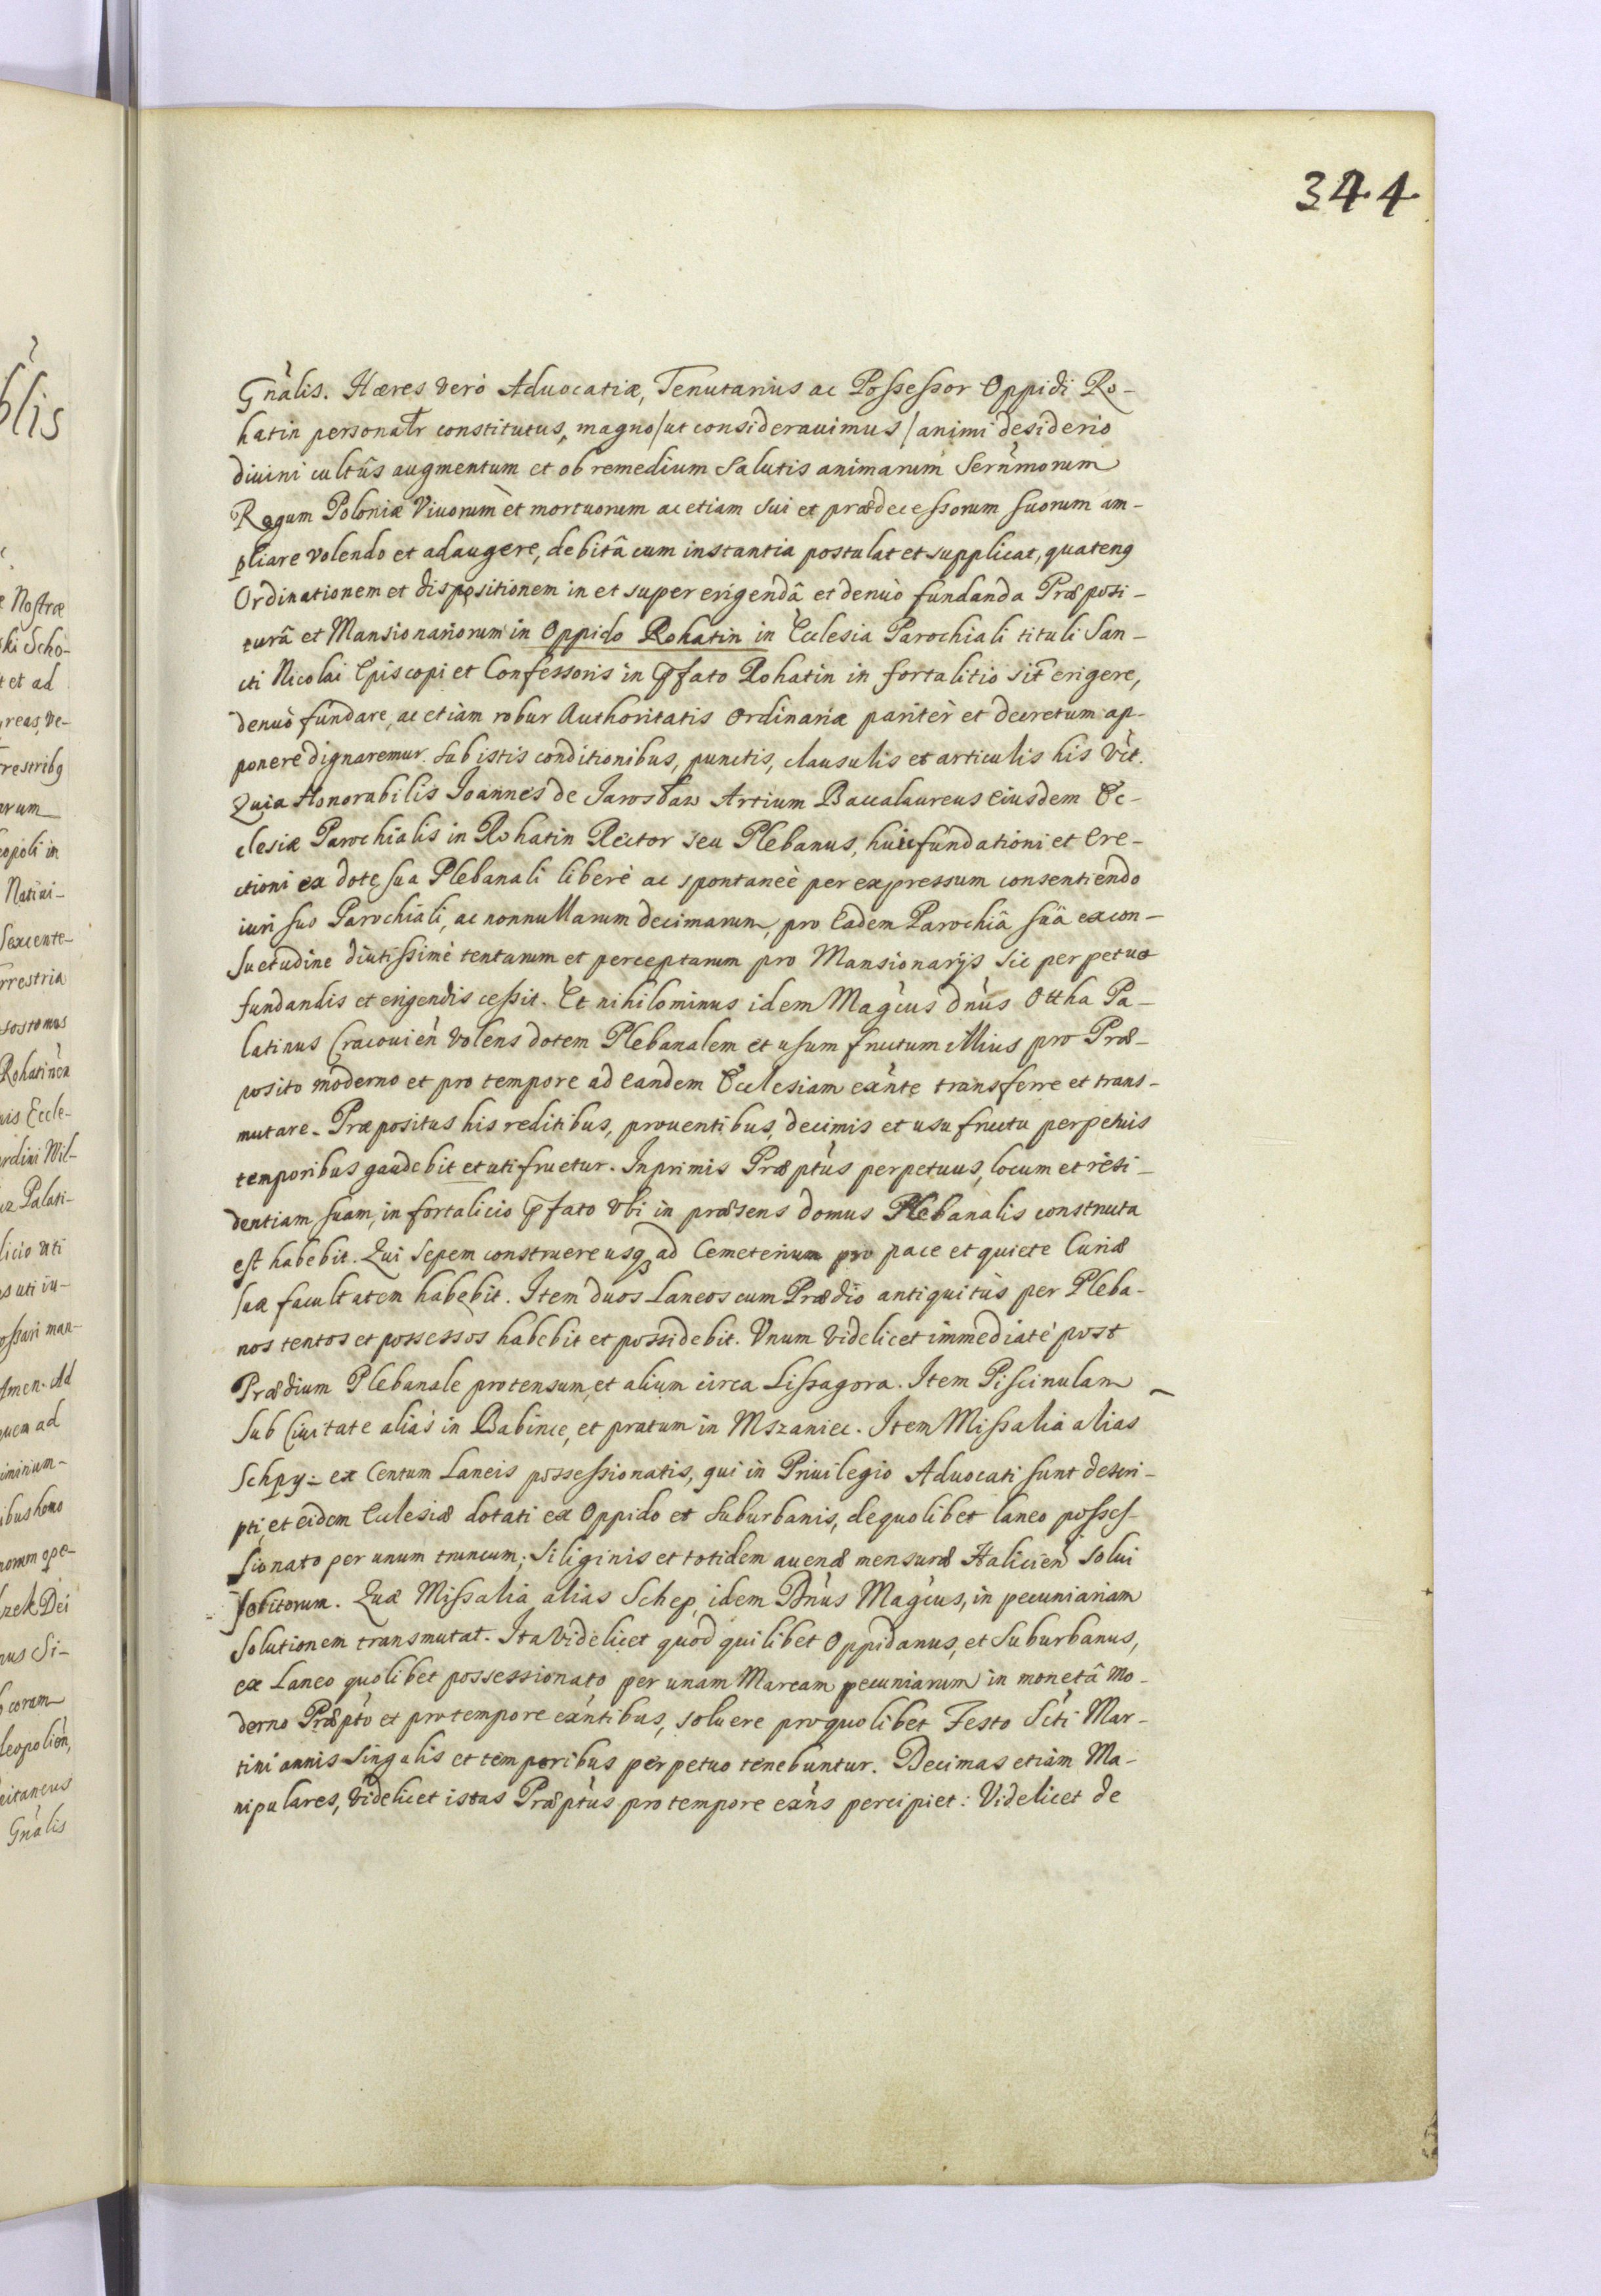 344
Gnãlis. Hæres verò Aduocatiæ, Tenutarius ac Possessor Oppidi Ro-
hatin personalr constitutus, magno /ut considerauimus/ animi desiderio
diuini cultûs augmentum et ob remedium salutis animarum Sernmorum
Regum Poloniæ Viuorum et mortuorum ac etiam sui et prædecessorum suorum am-
pliare volendo et adaugere, debitâ cum instantia postulat et supplicat, quateng
Ordinationem et dispositionem in et super erigendâ et denuò fundanda Præposi-
turâ et Mansionariorum in Oppido Rohatin in Ecclesia Parochiali tituli San-
cti Nicolai Episcopi et Confessoris in p̄fato Rohatin in fortalitio sit erigere,
denuò fundare, ac etiam robur Authoritatis Ordinariæ pariter et decretum ap-
ponere dignaremur. Sub istis conditionibus, punctis, clausulis et articulis his vit.
Quia Honorabilis Joannes de Jarosław Artium Baccalaureus eiusdem Ec-
clesiæ Parochialis in Rohatin Rector seu Plebanus, huic fundationi et ere-
ctioni ex dote sua Plebanali liberè ac spontaneè per expressum consentiendo
iuri suo Parochiali, ac nonnullarum decimarum, pro eadem Parochiâ suâ ex con-
suetudine diutissimè tentarum et perceptarum pro Mansionarijs sic perpetuo
fundandis et erigendis cessit. Et nihilominus idem Magcus Dnus Ottha Pa-
latinus Cracouien volens dotem Plebanalem et usum fructum illius pro Præ-
posito moderno et pro tempore ad eandem Ecclesiam exnte transferre et trans-
mutare. Præpositus his reditibus, prouentibus, decimis et usu fructu perpetuis
temporibus gaudebit et uti fruetur. Inprimis Præptus perpetuus, locum et resi-
dentiam suam, in fortalicio p̄fato Vbi in præsens domus Plebanalis constructa
est habebit. Qui Sepem construere usq ad Cemeterium pro pace et quiete Curiæ
suæ facultatem habebit. Item duos Laneos cum Prædio antiquitùs per Pleba-
nos tentos et possessos habebit et possidebit. Vnum videlicet immediatè post
Prædium Plebanale protensum, et alium circa Lissagora. Item Piscinulam
sub Ciuitate aliàs in Babince, et pratum in Mszaniec. Item Missalia alias
Schpy: ex Centum Laneis possessionatis, qui in Priuilegio Aduocati sunt descri-
pti, et eidem Ecclesiæ dotati ex Oppido et Suburbanis, de quolibet laneo posses-
sionato per unum truncum; Siliginis et totidem auenæ mensuræ Halicien solui
solitorum. Quæ Missalia alias Schep, idem Dnus Magcus, in pecuniariam
solutionem transmutat. Ita videlicet quod quilibet Oppidanus, et Suburbanus,
ex Laneo quolibet possessionato per unam Marcam pecuniarum in monetâ mo-
derno Præpto et pro tempore exntibus, soluere pro quolibet Festo Scti Mar-
tini annis singulis et temporibus perpetuo tenebuntur. Decimas etiam Ma-
nipulares, videlicet istas Præptus pro tempore exns percipiet: Videlicet de